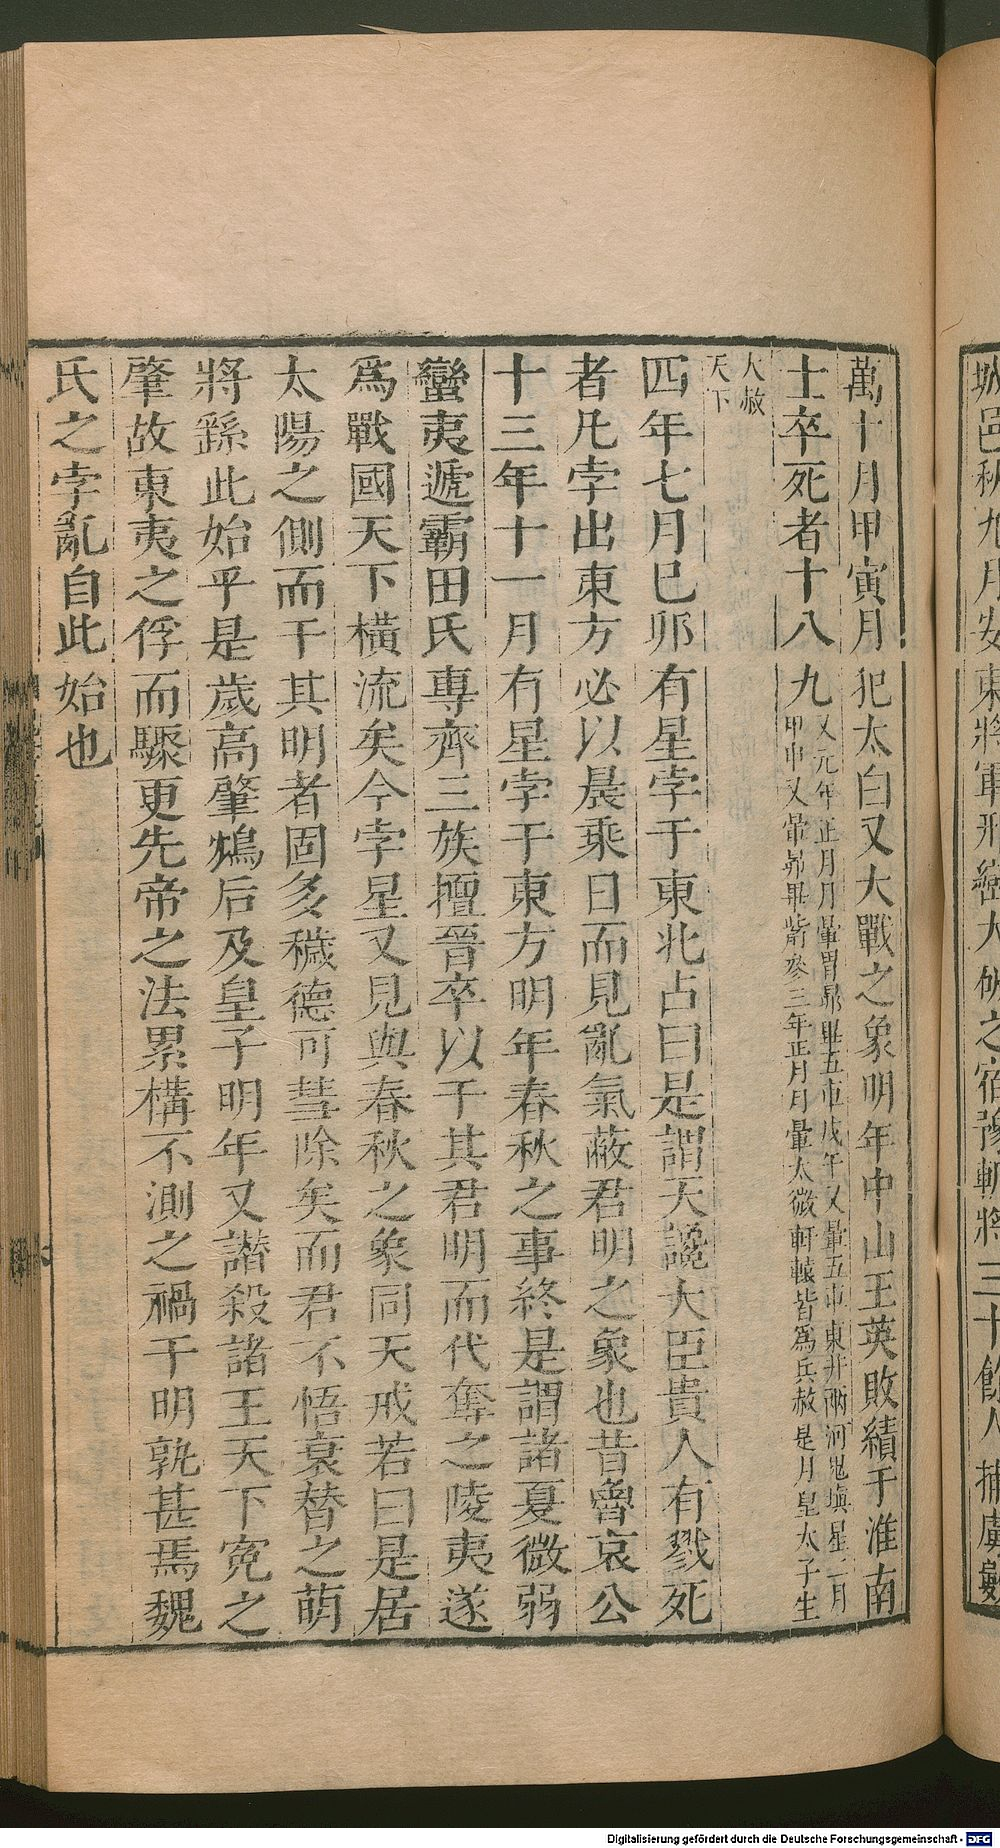 城邑秋九月安東將軍邢巒大
萬十月甲寅月犯太白又大戰之象明年中山王英敗績于淮南
士卒死者十八九
又元年正月月暈胃昴畢五車戊午又暈五車東井兩河鬼塡星二月
甲申又暈昴畢觜參三年正月月暈太微軒轅皆爲兵赦是月皇太子生
大赦
天下
四年七月巳卯有星孛于東北占曰是謂天讒大臣貴人有戮死
者凡孛出東方必以晨乘日而見亂氣蔽君明之象也昔魯哀公
十三年十一月有星孛于東方明年春秋之事終是謂諸夏微弱
蠻夷遞霸田氏專齊三族擅晉卒以干其君明而代奪之陵夷遂
爲戰國天下橫流矣今孛星又見與春秋之象同天戒若曰是居
太陽之側而干其明者固多穢德可彗除矣而君不悟衰替之萌
將繇此始乎是歲高肇鴆后及皇子明年又譖殺諸王天下寃之
肇故東夷之俘而驟更先帝之法累構不測之禍干明孰甚焉魏
氏之孛亂自此始也
Digitalisierung gefördert durch die Deutsche Forschungsgemeinschaft - DFG